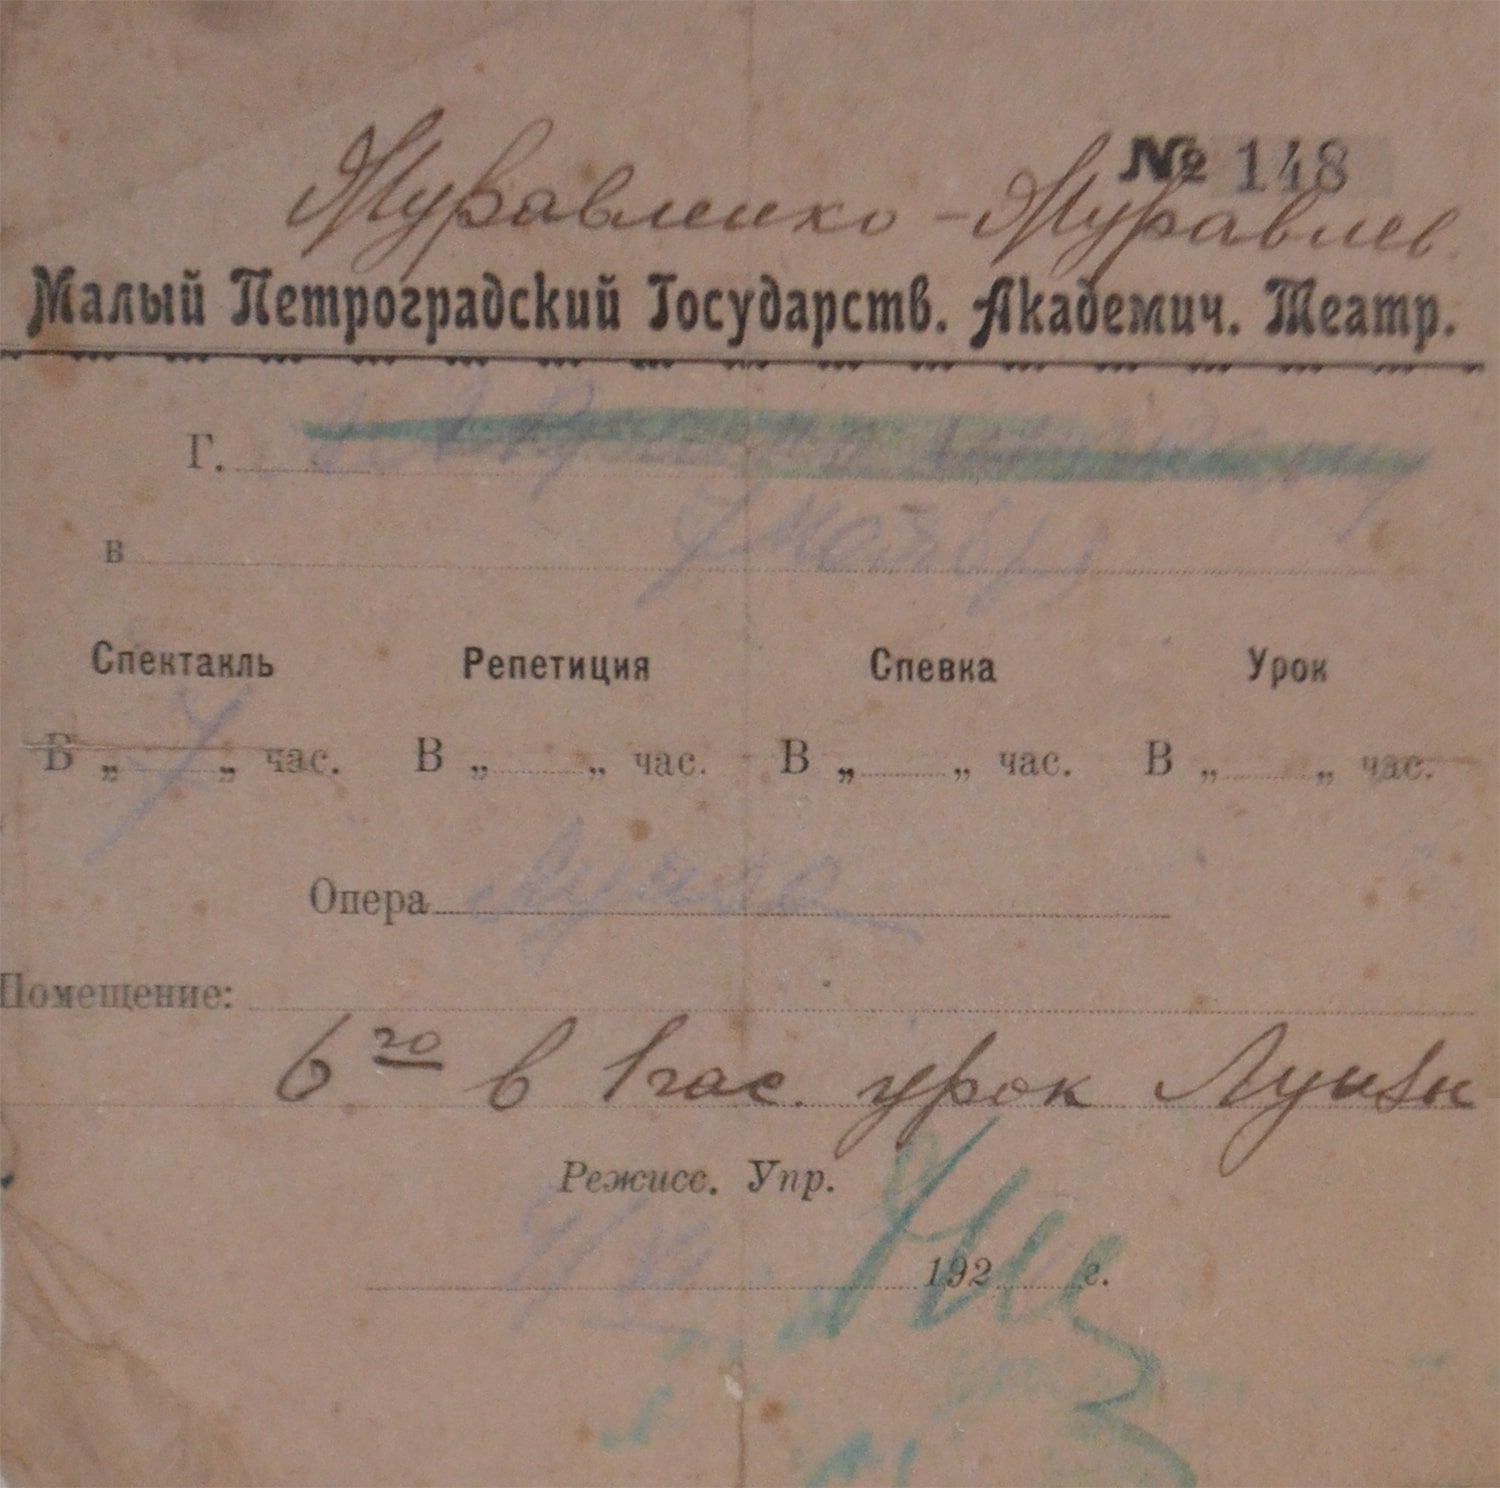 № 148
Муравленко - Муравлев
Малый Петроградский Государств. Академич. Театр.
Г.
в 7 ноября
Спектакль Репетиция Спевка Урок
В „ 7 „ час. В „ „ час. В „ „ час. В „ „ час.
Опера Луиза
Помещение:
6го в 1 час. урок Луизы
Режисс. Упр.
192 г.